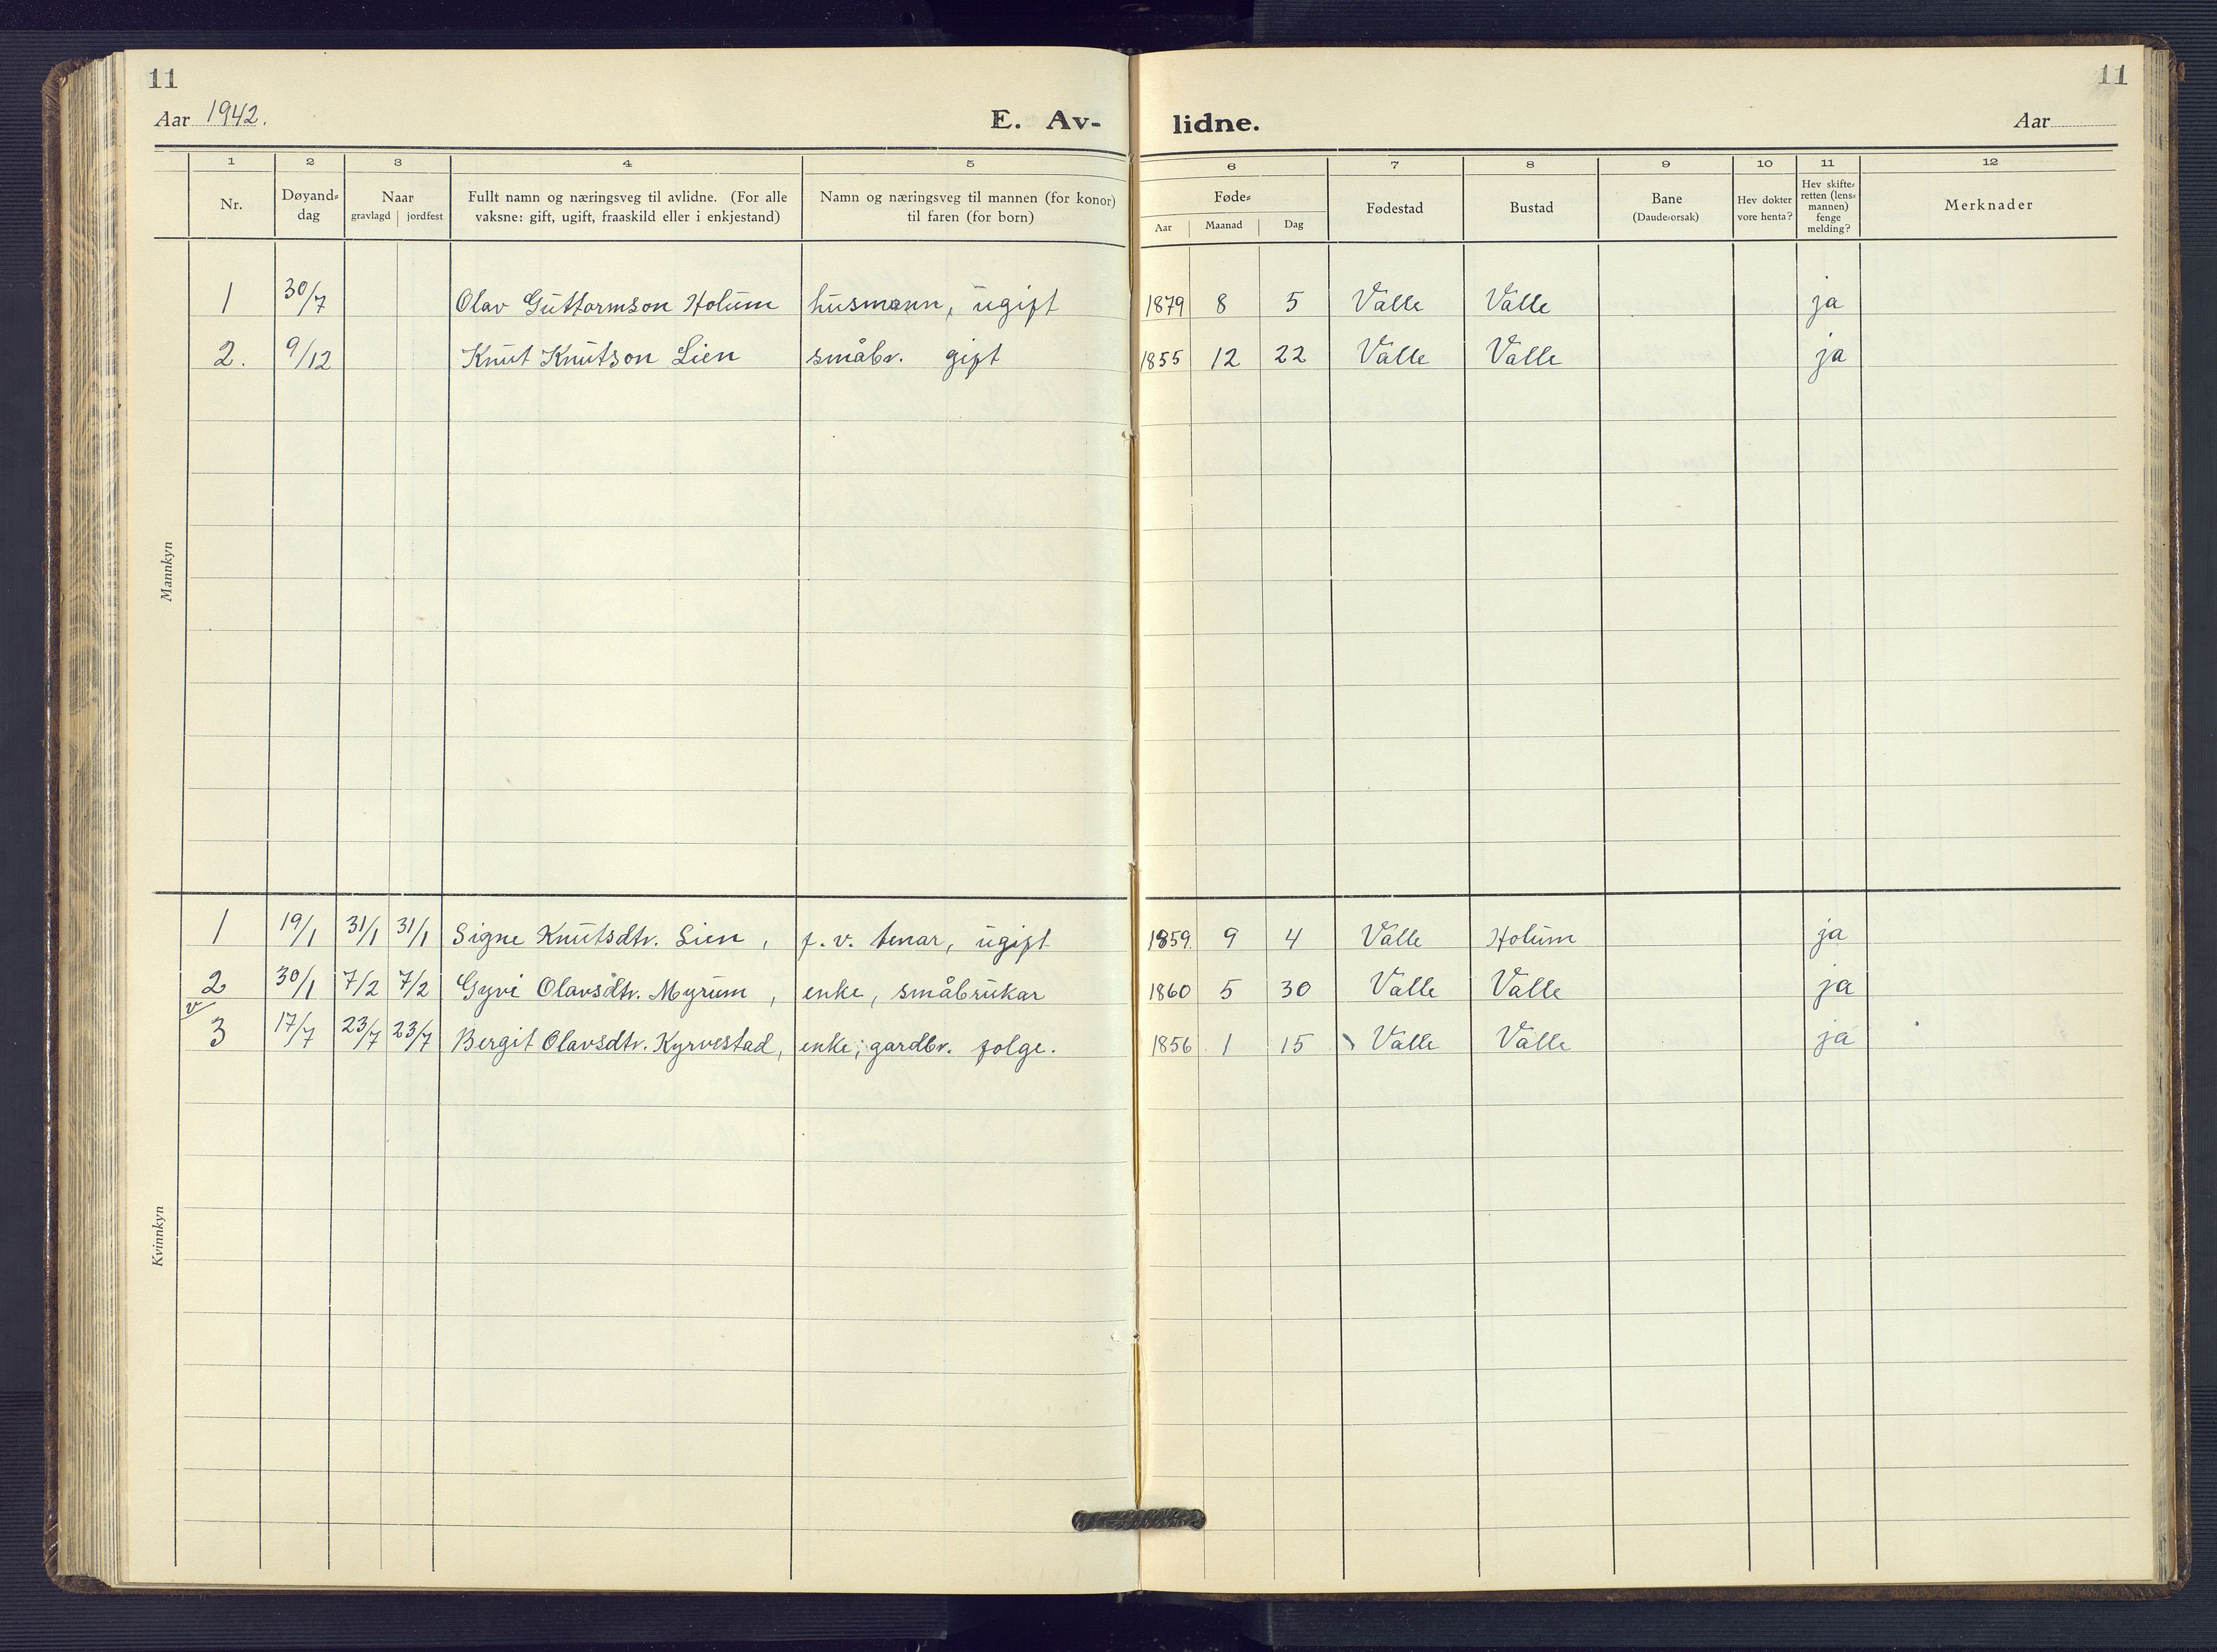 11
11
Aar 1942.
E. Av-
lidne.
Aar
1 2 3 4 5 6 7 8 9 10 11 12
Nr.
Døyand-
dag
Naar
gravlagd | jordfest
Fullt namn og næringsveg til avlidne. (For alle
vaksne: gift, ugift, fraaskild eller i enkjestand)
Namn og næringsveg til mannen (for konor)
til faren (for born)
Føde-
Aar Maanad Dag
Fødestad
Bustad
Bane
(Daude-orsak)
Hev dokter
vore henta?
Hev skifte-
retten (lens-
mannen)
fenge
melding?
Merknader
Mannkyn
1 30/7 Olav Guttormson Holum husmann, ugift 1879 8 5 Valle Valle ja
2. 9/12 Knut Knutson Lien småbr. gift 1855 12 22 Valle Valle ja
Kvinnkyn
1 19/1 31/1 31/1 Signe Knutsdtr. Lien, f. v. tenar, ugift 1859. 9 4 Valle Holum ja
2 30/1 7/2 7/2 Gyvi Olavsdtr. Myrum, enke, småbrukar 1860 5 30 Valle Valle ja
3 17/7 23/7 23/7 Bergit Olavsdtr. Kyrvestad, enke, gardbr. folge. 1856 1 15 Valle Valle ja